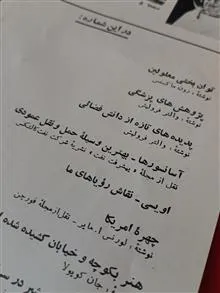 در این شماره:
توان بخشی معلولین
نوشتهٔ، رون ماکس
پژوهش‌های پزشکی
نوشتهٔ، والتر فرولیش
پدیده‌های تازه از دانش فضائی
نوشتهٔ، والتر فرولیش
آسانسورها - بهترین وسیلهٔ حمل و نقل عمودی
نقل از مجلهٔ «پیشرفت نفت» نشریهٔ شرکت نفت کالتکس
اوبسی - نقاش رؤیاهای ما
چهرهٔ امریکا
نوشتهٔ، لورنس ا. مایر - نقل از مجلهٔ فورچن
هنر بکوچه و خیابان کشیده شده ا
جان کوپولا
شهر در سد